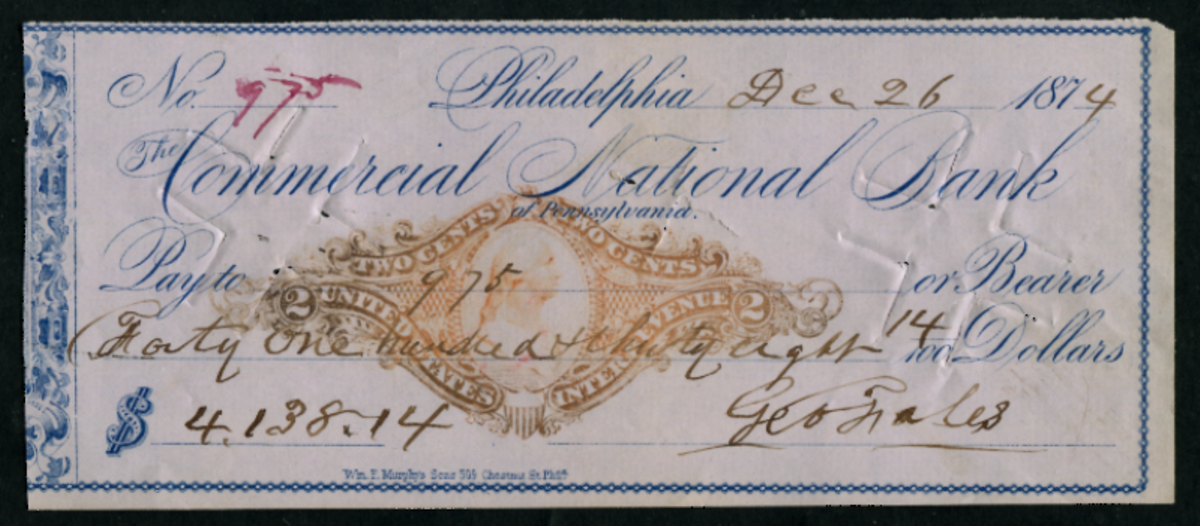 No. 975 Philadelphia Dec 26 1874
The Commercial National Bank
of Pennsylvania.
TWO CENTS TWO CENTS
Pay to 975 or Bearer
2 UNITED STATES INTER REVENUE 2
Forty One hundred & thirty eight 14/100 Dollars
$ 4.138.14 Geo Fales
Wm. F. Murphy's Sons 509 Chestnut St. Phila